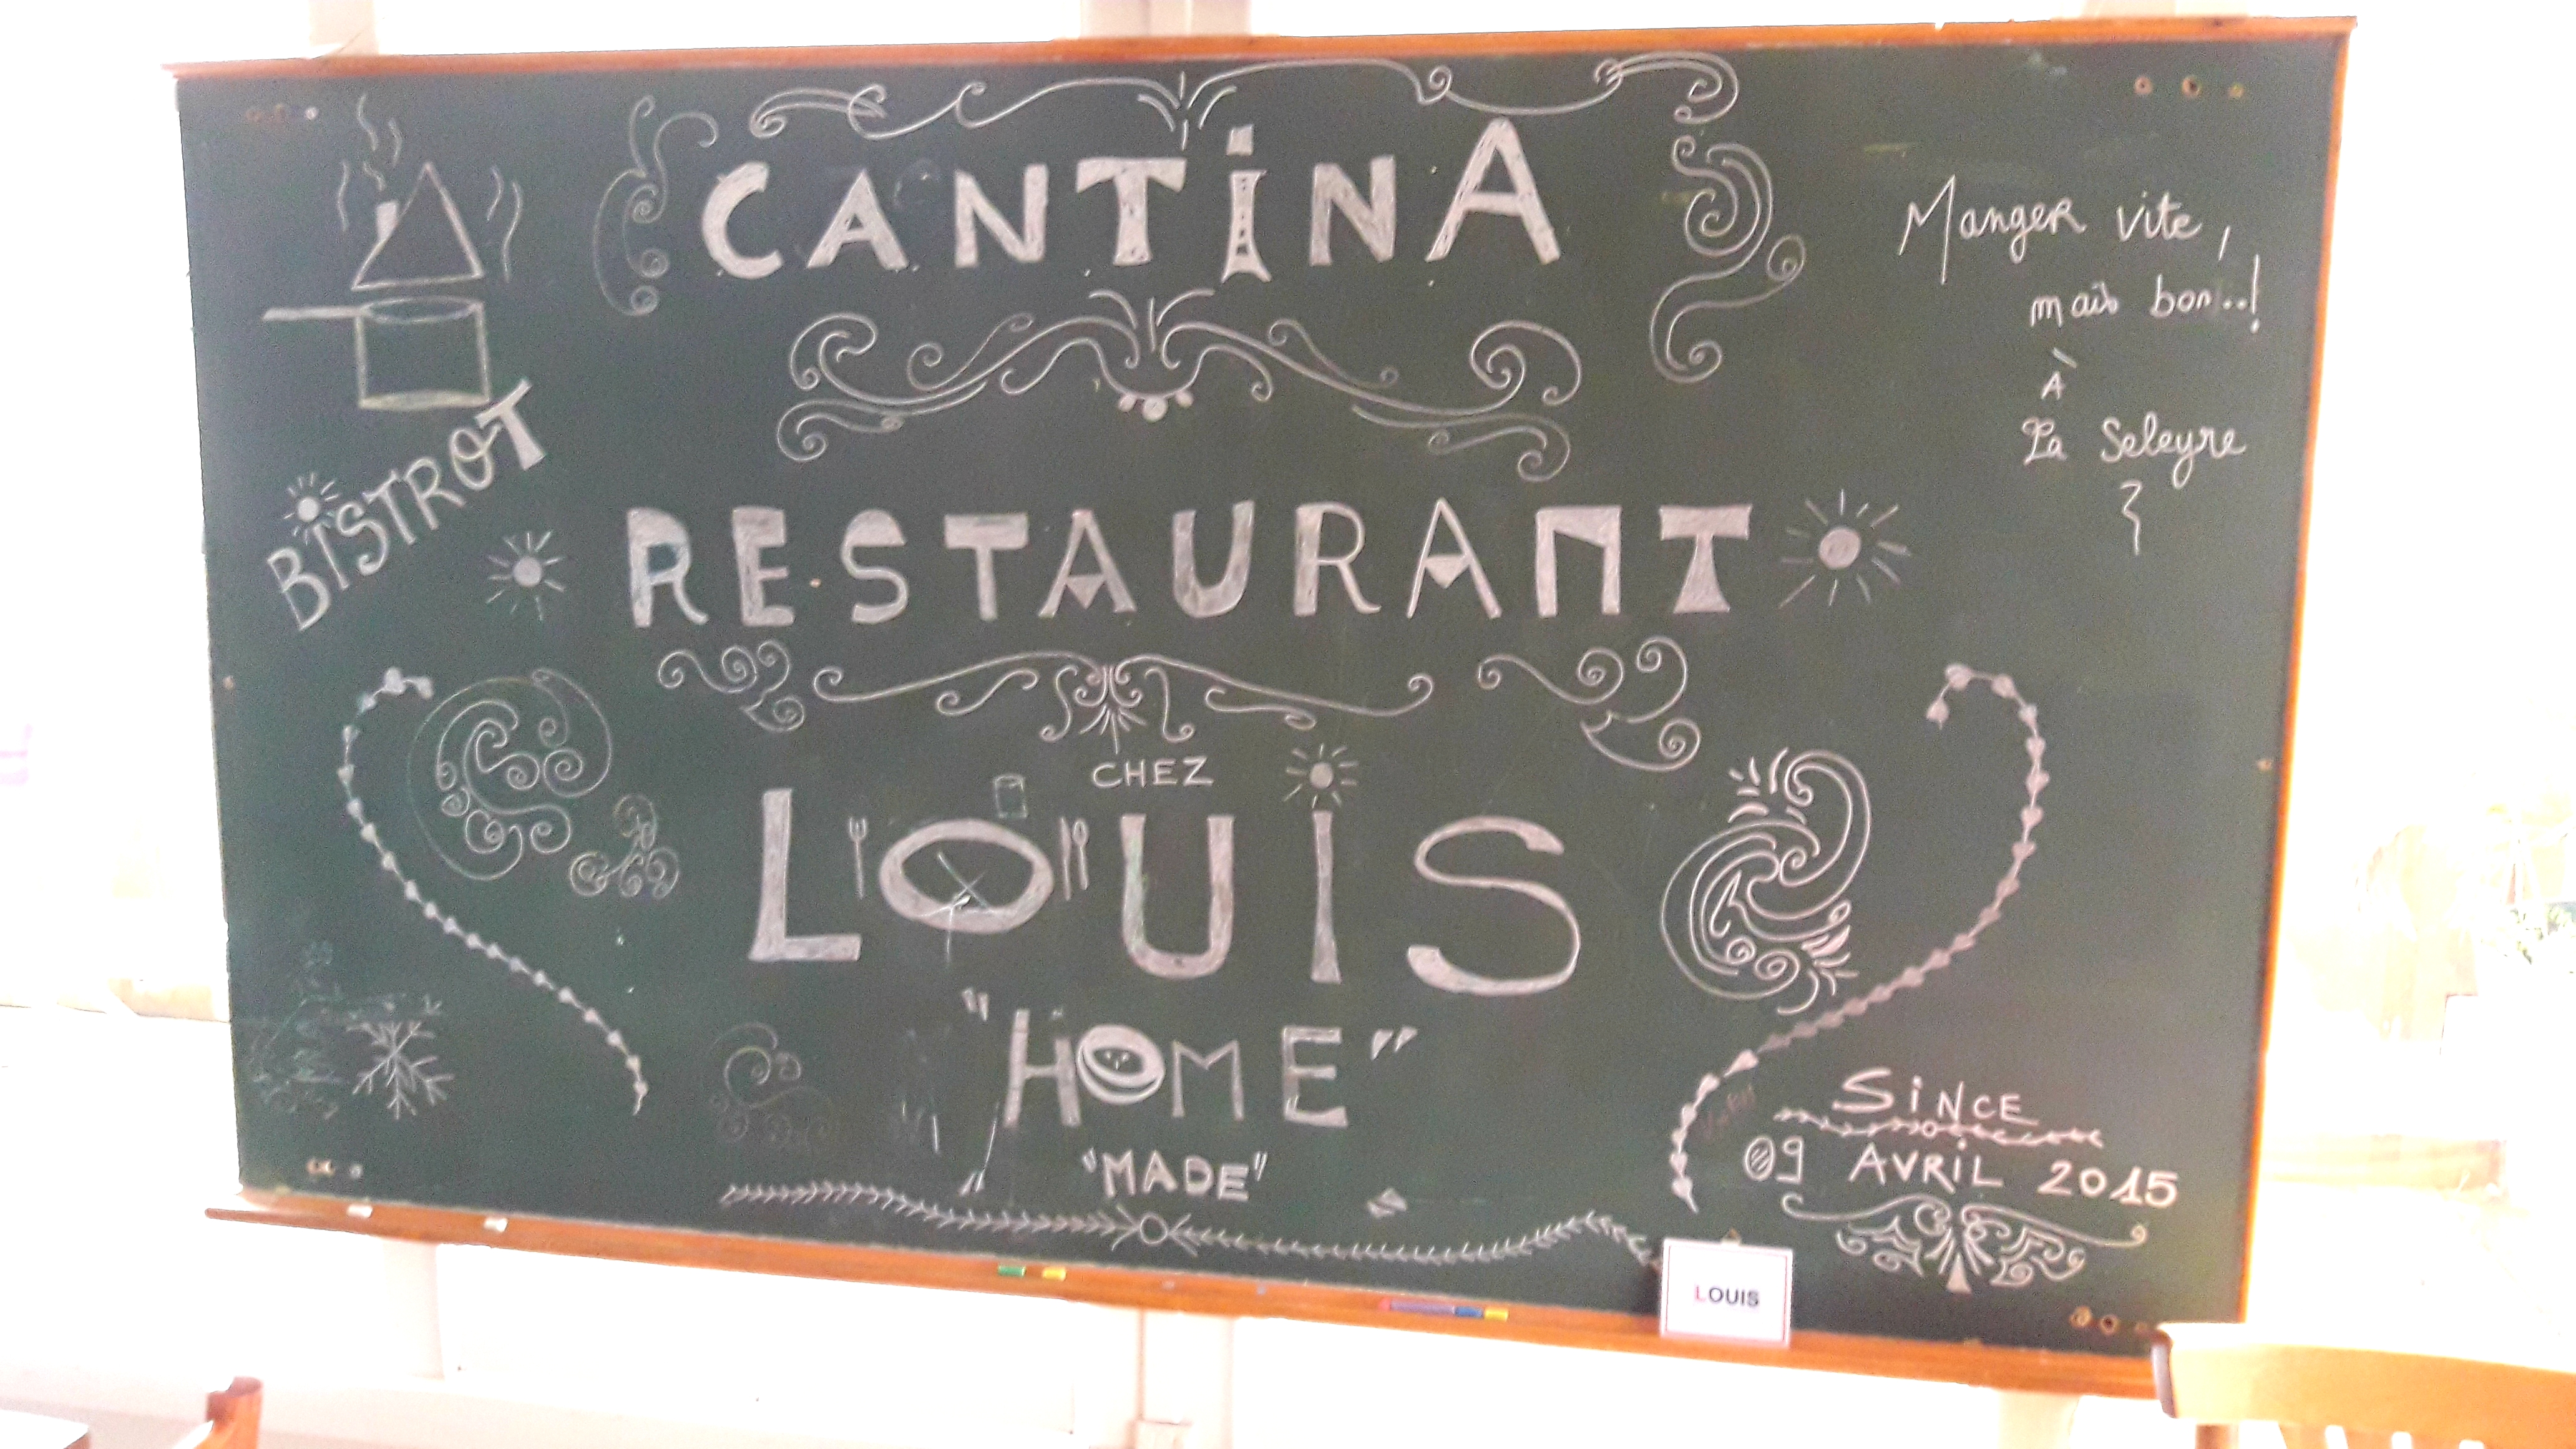 CANTiNA
MangeR vite,
mais bon...!
À
La Seleyre
BISTROT
RESTAURANT
CHEZ
LOUIS
"HOME"
"MADE"
SiNCE
09 AVRiL 2015
LOUIS